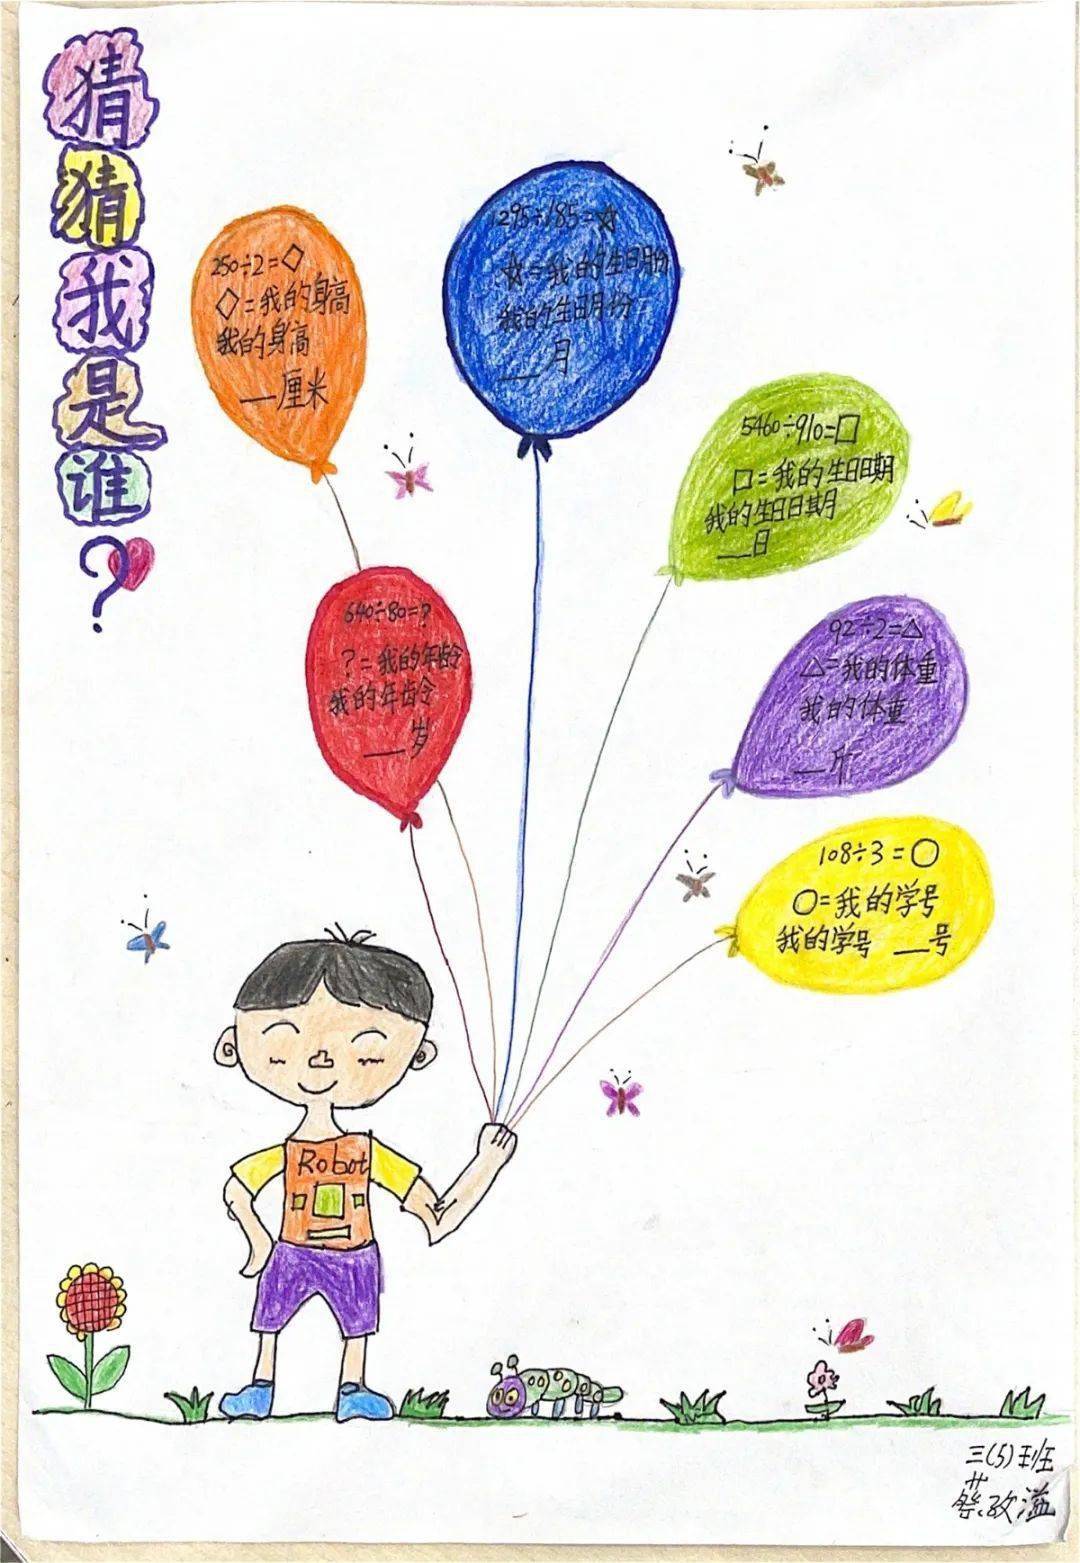 猜猜我是谁?
250÷2=◇
◇=我的身高
我的身高
__厘米
1295÷185=☆
☆=我的生日月份
我的生日月份
__月
5460÷910=□
□=我的生日日期
我的生日日期
__日
640÷80=?
?=我的年龄
我的年龄
__岁
92÷2=△
△=我的体重
我的体重
__斤
108÷3=○
○=我的学号
我的学号 __号
Robot
三(5)班
蔡孜溢